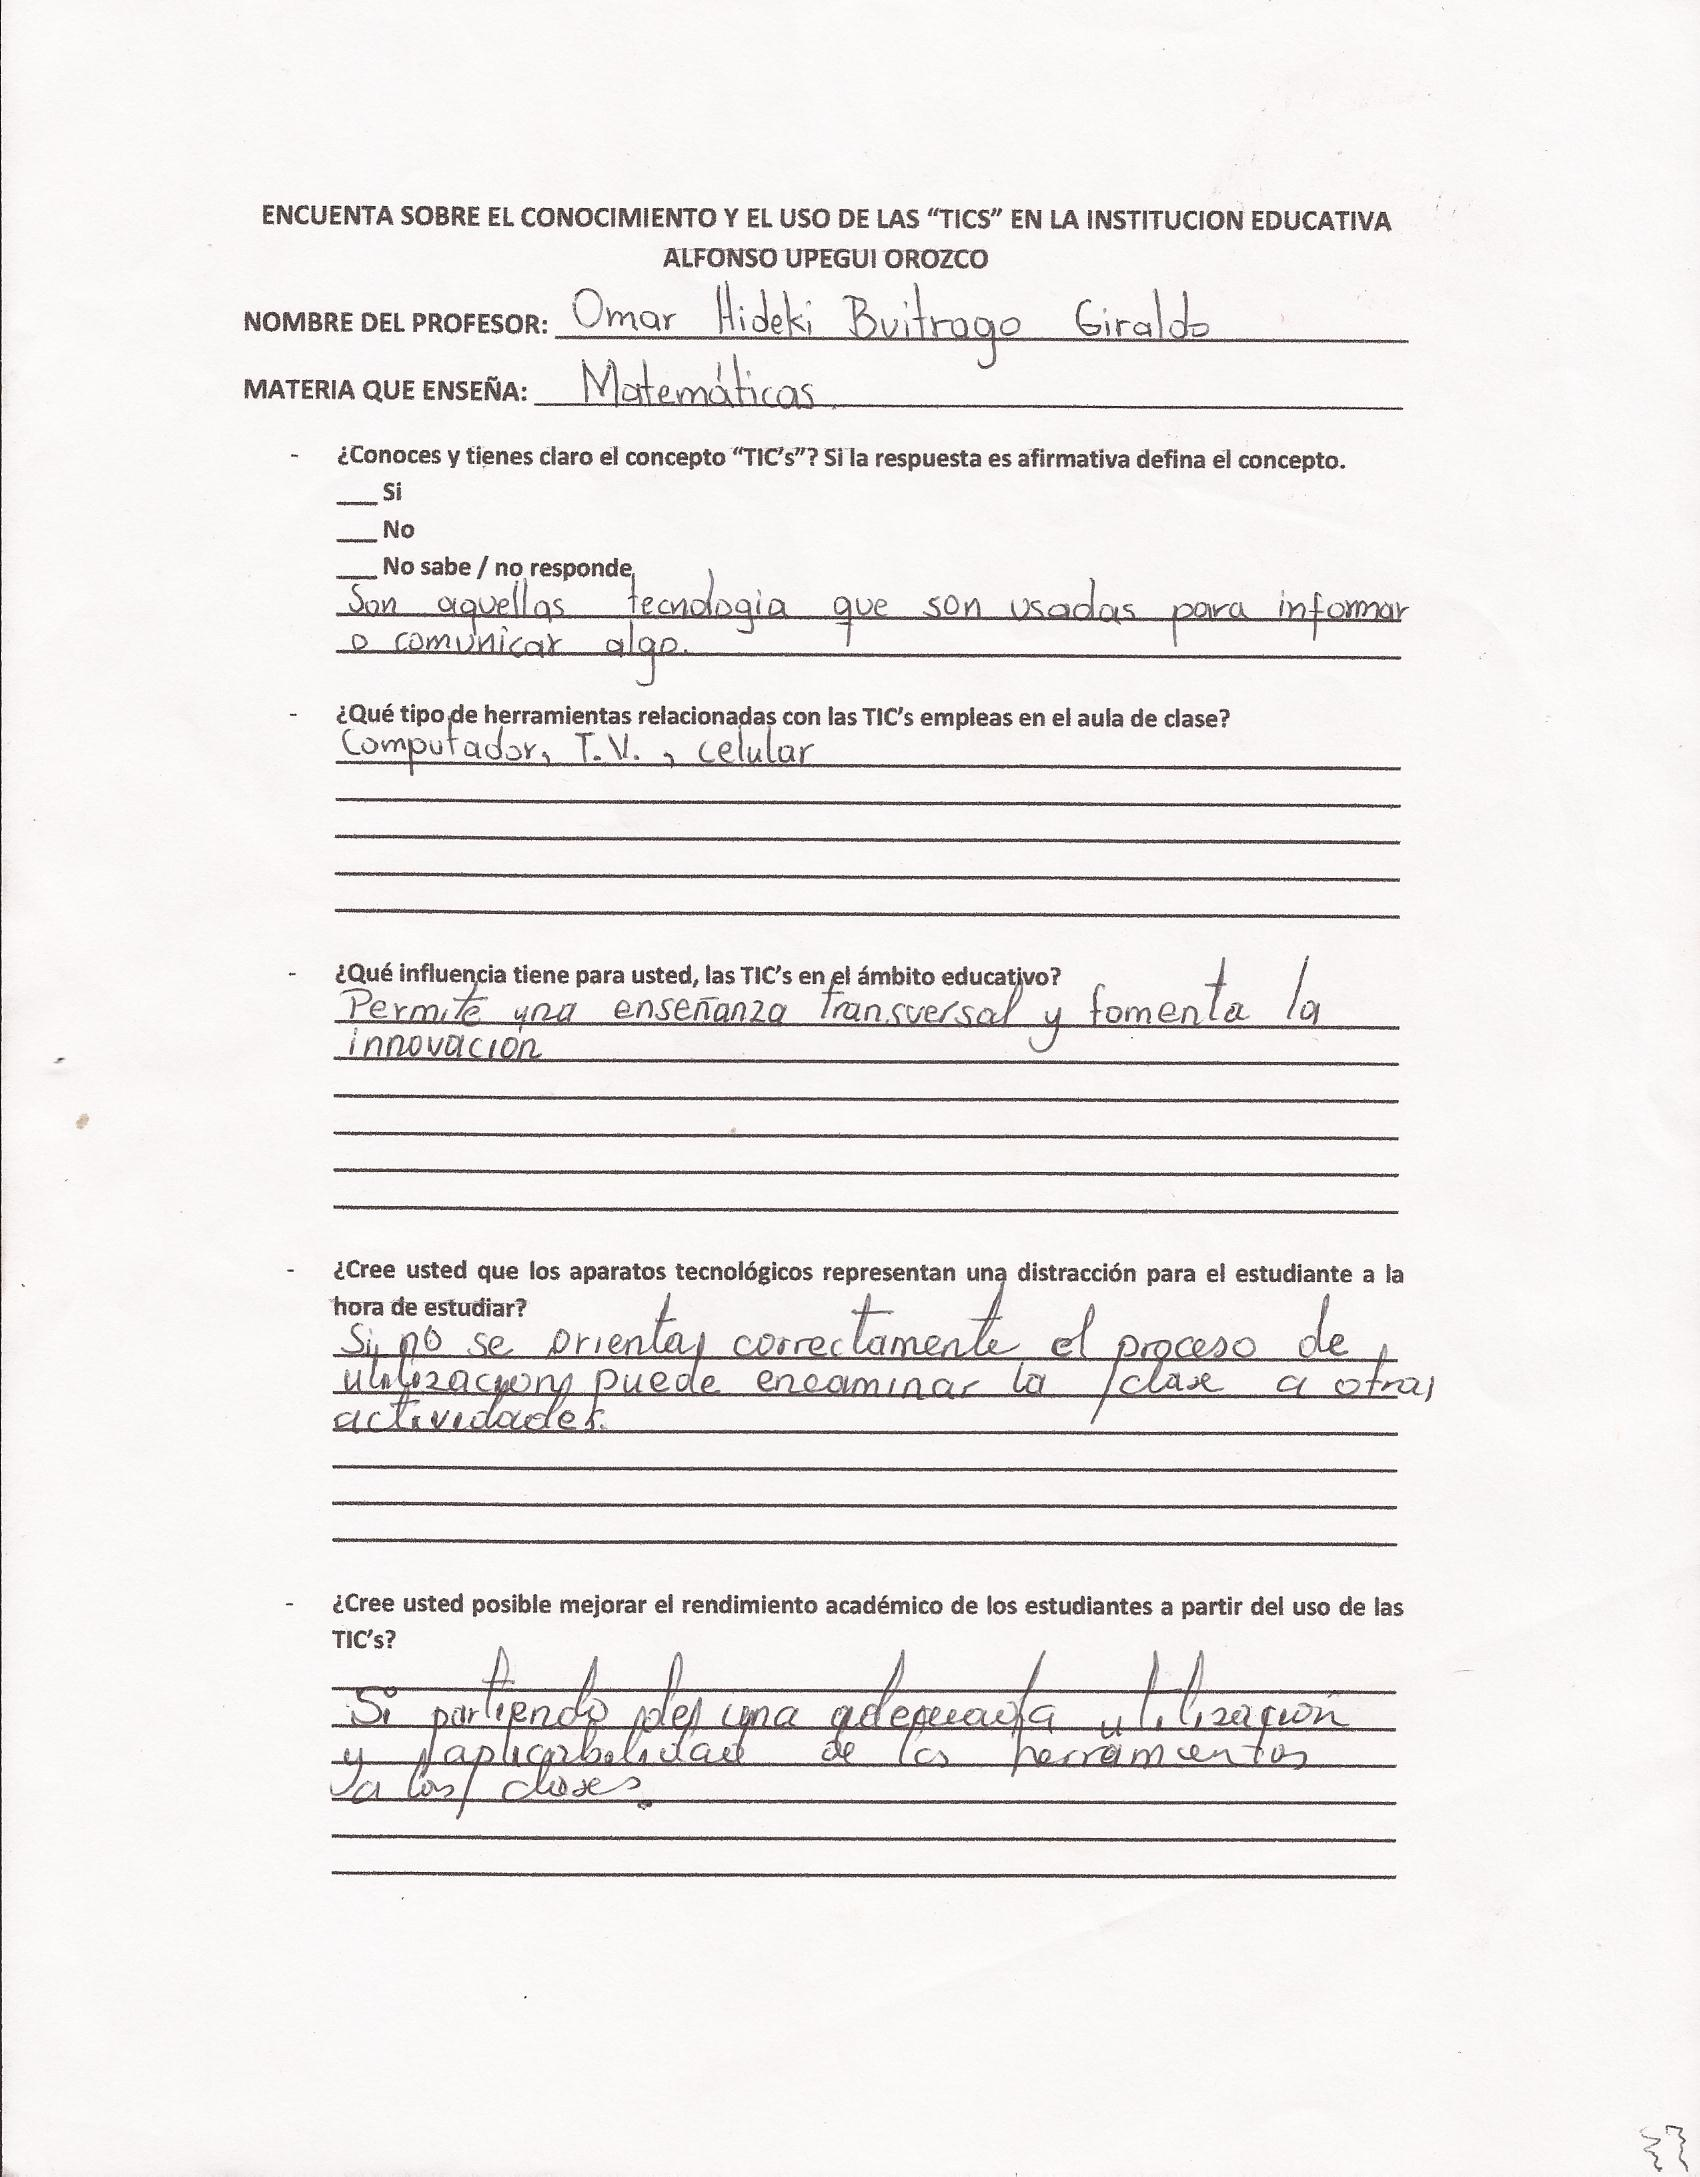 ENCUENTA SOBRE EL CONOCIMIENTO Y EL USO DE LAS “TICS” EN LA INSTITUCION EDUCATIVA
ALFONSO UPEGUI OROZCO
NOMBRE DEL PROFESOR: Omar Hideki Buitrago Giraldo
MATERIA QUE ENSEÑA: Matemáticas
- ¿Conoces y tienes claro el concepto “TIC’s”? Si la respuesta es afirmativa defina el concepto.
___ Si
___ No
___ No sabe / no responde
Son aquellas tecnologia que son usadas para informar
o comunicar algo.
- ¿Qué tipo de herramientas relacionadas con las TIC’s empleas en el aula de clase?
Computador, T.V. , celular
- ¿Qué influencia tiene para usted, las TIC’s en el ámbito educativo?
Permite una enseñanza transversal y fomenta la
innovación
- ¿Cree usted que los aparatos tecnológicos representan una distracción para el estudiante a la
hora de estudiar?
Si no se orienta correctamente el proceso de
utilización puede encaminar la clase a otras
actividades.
- ¿Cree usted posible mejorar el rendimiento académico de los estudiantes a partir del uso de las
TIC’s?
Si partiendo de una adecuada utilización
y aplicabilidad de las herramientas
a las clases.